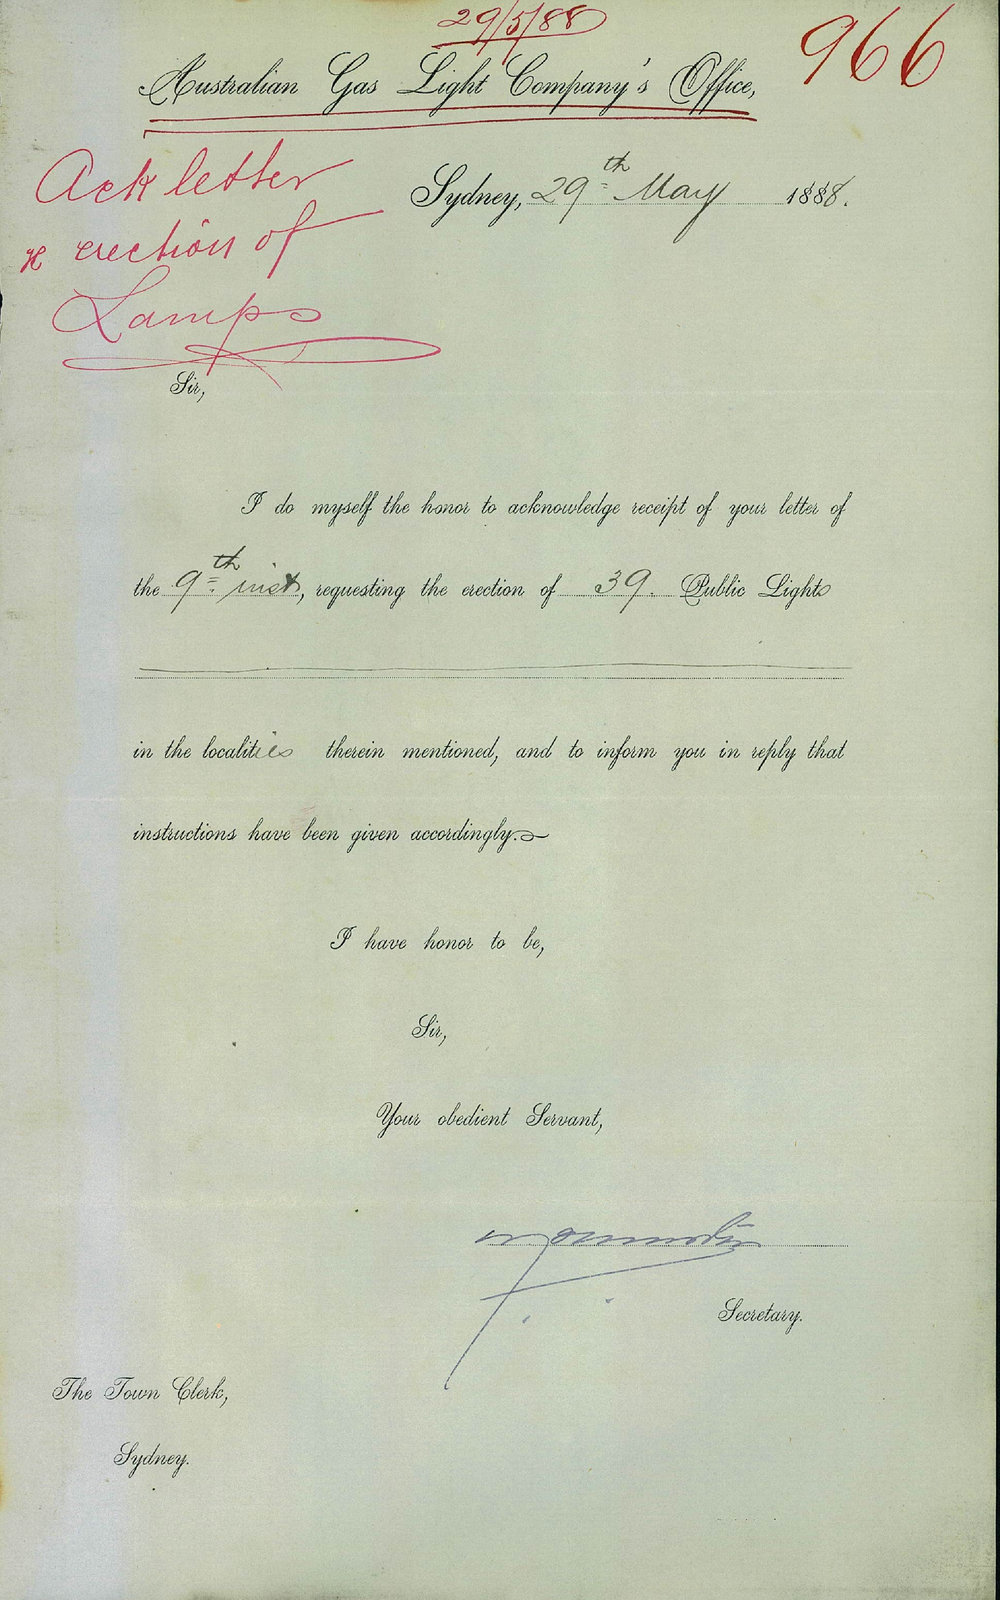 29/5/88
966
Australian Gas Light Company's Office,
Sydney, 29th May 1888.
Ack letter
re erection of
Lamps
Sir,
I do myself the honor to acknowledge receipt of your letter of
the 9th inst, requesting the erection of 39. Public Lights
in the localities therein mentioned, and to inform you in reply that
instructions have been given accordingly.
I have honor to be,
Sir,
Your obedient Servant,
Secretary.
The Town Clerk,
Sydney.